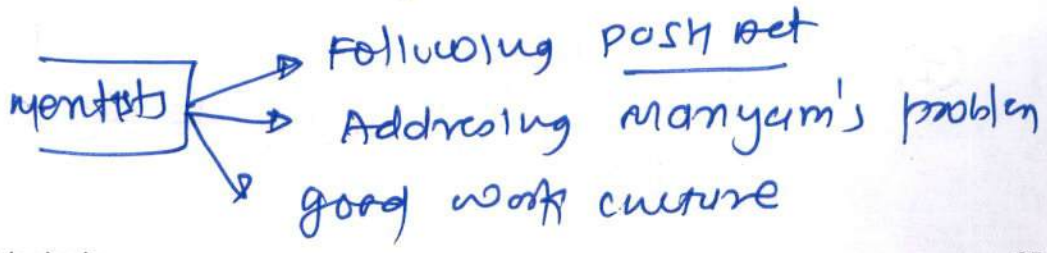 Following POSH Act
Merits
Addressing Manyam's problem
good work culture